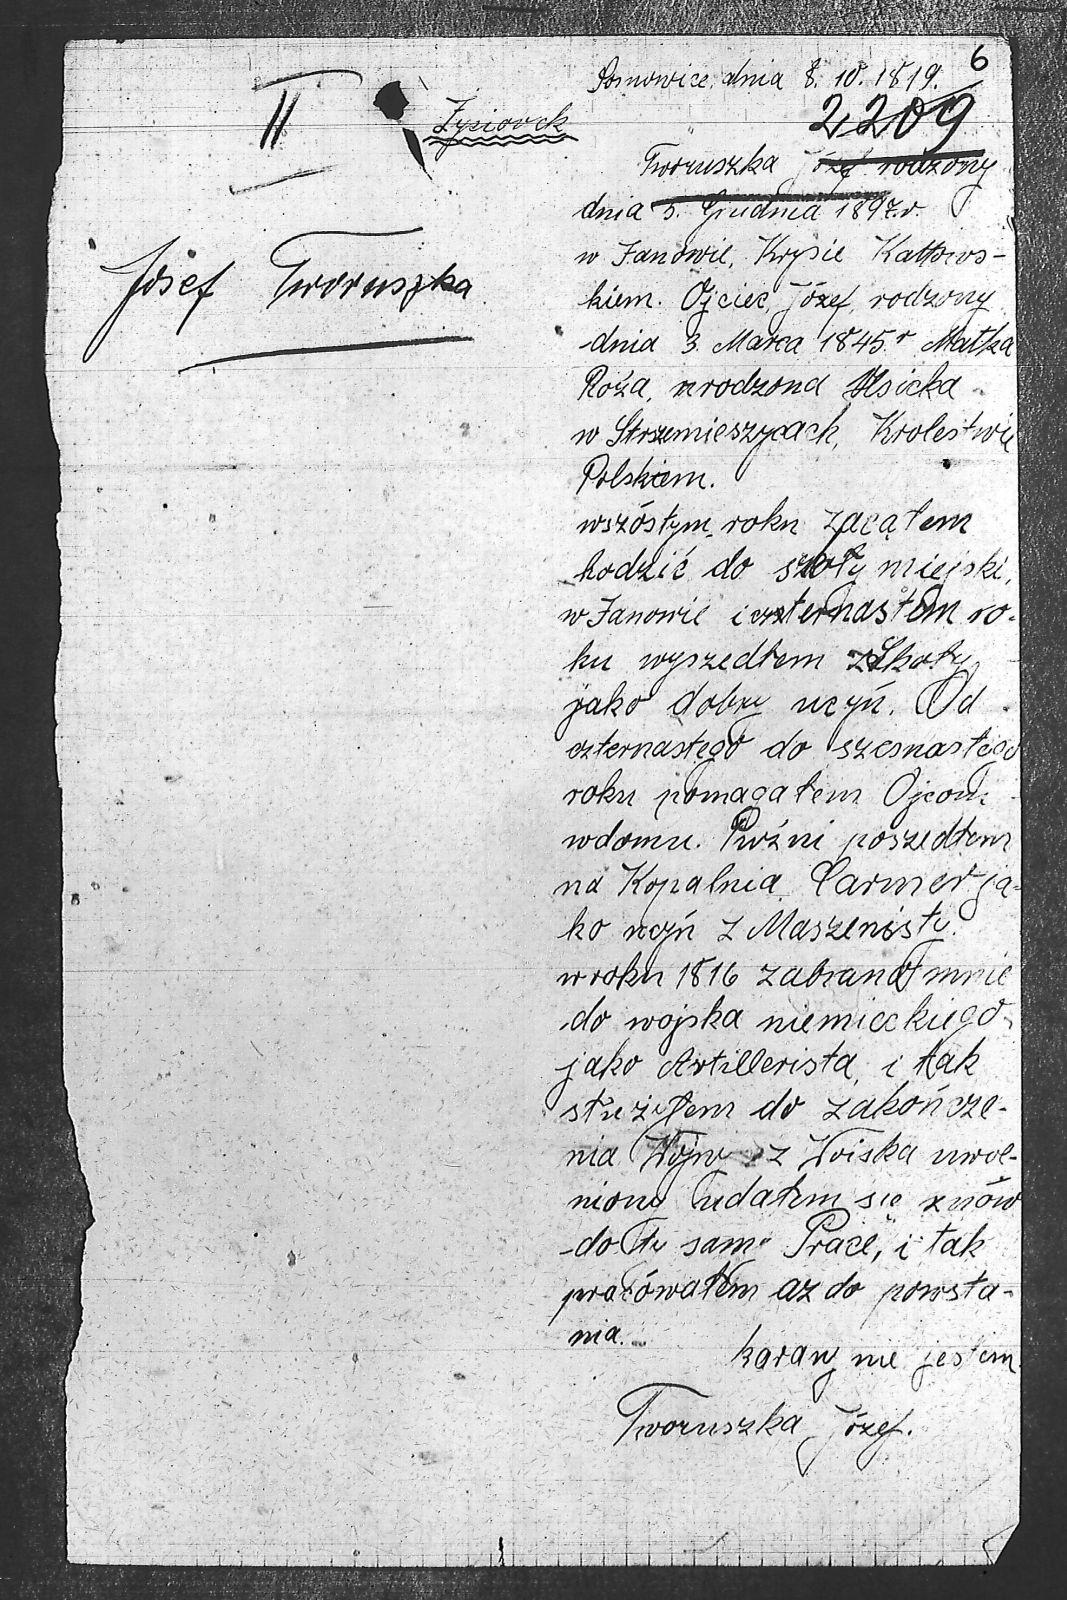 6
Sosnowice, dnia 8. 10. 1819.
2209
II
Życiorek
Tworuszka Józef rodzony
dnia 5. Grudnia 1897.r.
w Janowie, Krysie Kattows-
kiem. Ojciec, Józef, rodzony
dnia 3. Marca 1845.r Matka
Josef Tworuszka
Roża, urodzona
w Strzemieszycach, Krolestwie
Polskiem.
wszóstym, roku zacąłem
hodzić do szkoły miejski,
w Janowie i czternastem ro-
ku wyszedłem zSkoły
jako dobry uczyń. Od
czternastego do szesnastego
roku pomagałem Ojcow.
wdomu. Puźni poszedłem
na Kopalnia Carmer ja-
ko uczyń z Maszenisty.
w roku 1816 zabrano mnie
do wojska niemieckiego
jako Artillerista, i tak
służyłem do zakończe-
nia Wojny z Woiska uwol-
niony udałem się znów
do ty samy Prace, i tak
pracówałem az do powsta-
nia.
karany nie jestem
Tworuszka Józef.